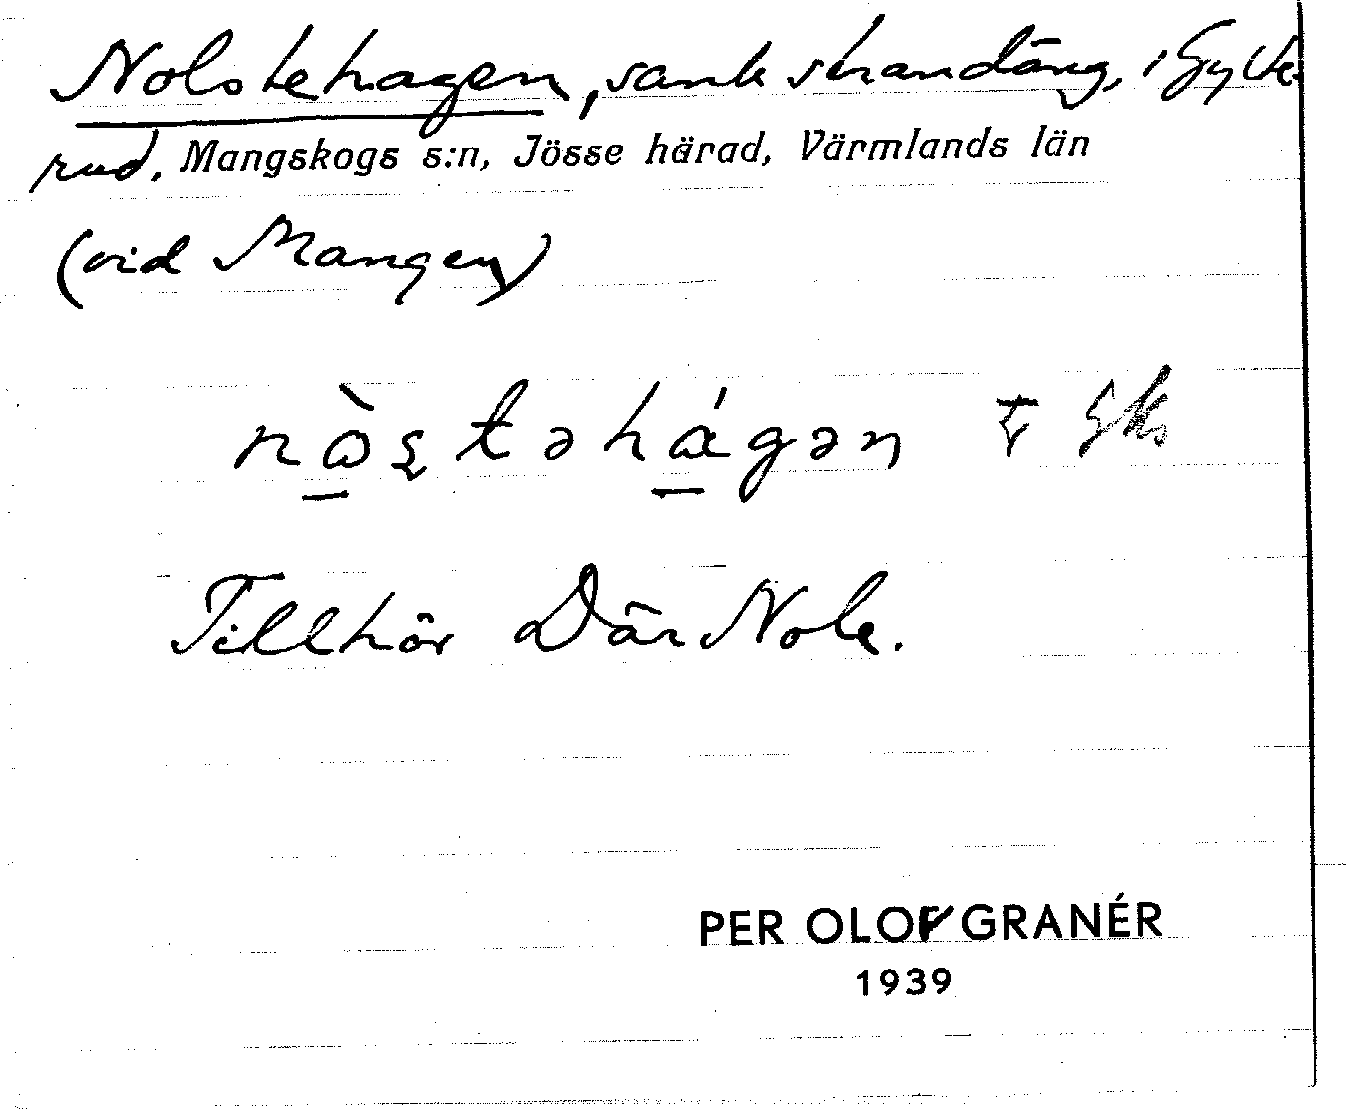 Nolstehagen, sank strandäng, i Gylte-
rud. Mangskogs s:n, Jösse härad, Värmlands län
(vid Mangen)
nὼ̠ʂtəhá̠gən
Tillhör Där Nole.
PER OLOF GRANÉR
1939